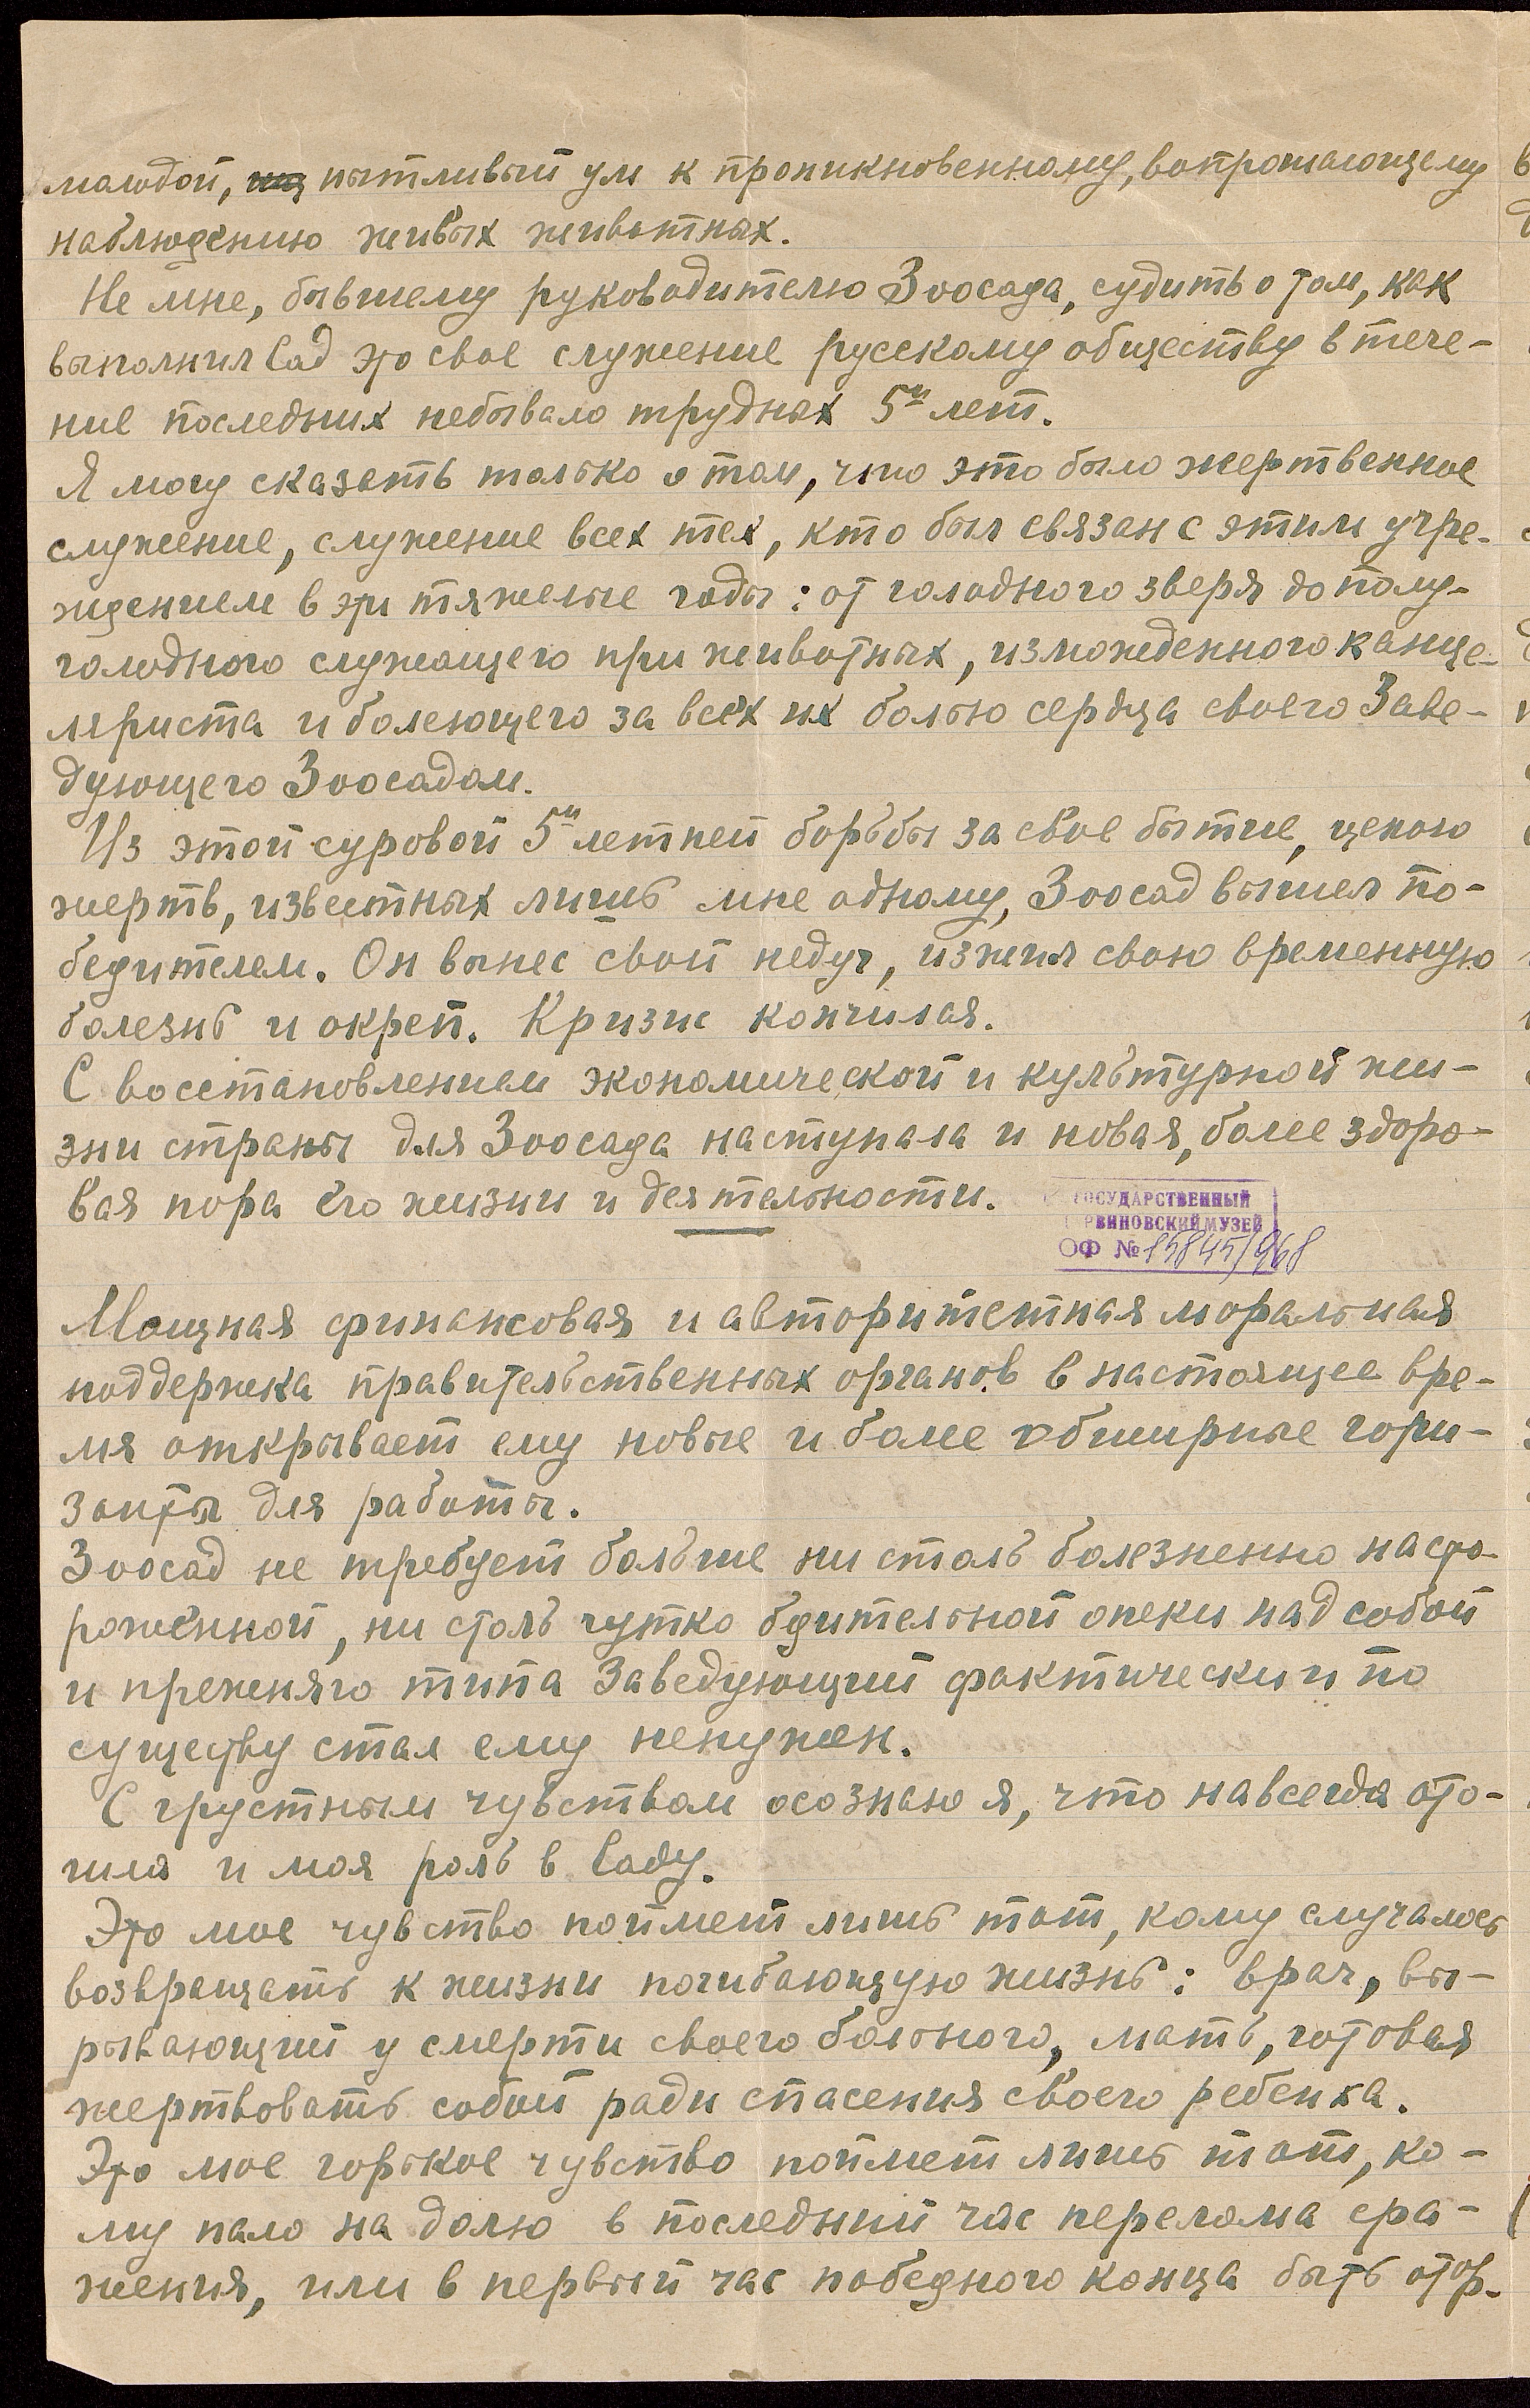 молодой, пытливый ум к проникновенному, вопрошающему
наблюдению живых животных.
Не мне, бывшему руководителю Зоосада, судить о том, как
выполнил Сад это свое служение русскому обществу в тече-
ние последних небывало трудных 5и лет.
Я могу сказать только о том, что это было жертвенное
служение, служение всех тех, кто был связан с этим учре-
ждением в эти тяжелые годы: от голодного зверя до полу-
голодного служащего при животных, изможденного канце-
ляриста и болеющего за всех их болью сердца своего Заве-
дующего Зоосадом.
Из этой суровой 5и летней борьбы за свое бытие, ценою
жертв, известных лишь мне одному, Зоосад вышел по-
бедителем. Он вынес свой недуг, изжил свою временную
болезнь и окреп. Кризис кончился.
С восстановлением экономической и культурной жи-
зни страны для Зоосада наступала и новая, более здоро-
вая пора его жизни и деятельности.
ГОСУДАРСТВЕННЫЙ
РВИНОВСКИЙ МУЗЕЙ
ОФ № 15845/968
Мощная финансовая и авторитетная моральная
поддержка правительственных органов в настоящее вре-
мя открывает ему новые и более обширные гори-
зонты для работы.
Зоосад не требует больше ни столь болезненно насто-
роженной, ни столь чутко бдительной опеки над собой
и прежняго типа Заведующий фактически и по
существу стал ему ненужен.
С грустным чувством осознаю я, что навсегда ото-
шла и моя роль в Саду.
Это мое чувство поймет лишь тот, кому случалось
возвращать к жизни погибающую жизнь: врач, вы-
рывающий у смерти своего больного, мать, готовая
жертвовать собой ради спасения своего ребенка.
Это мое горькое чувство поймет лишь тот, ко-
му пало на долю в последний час перелома сра-
жения, или в первый час победного конца быть отор-